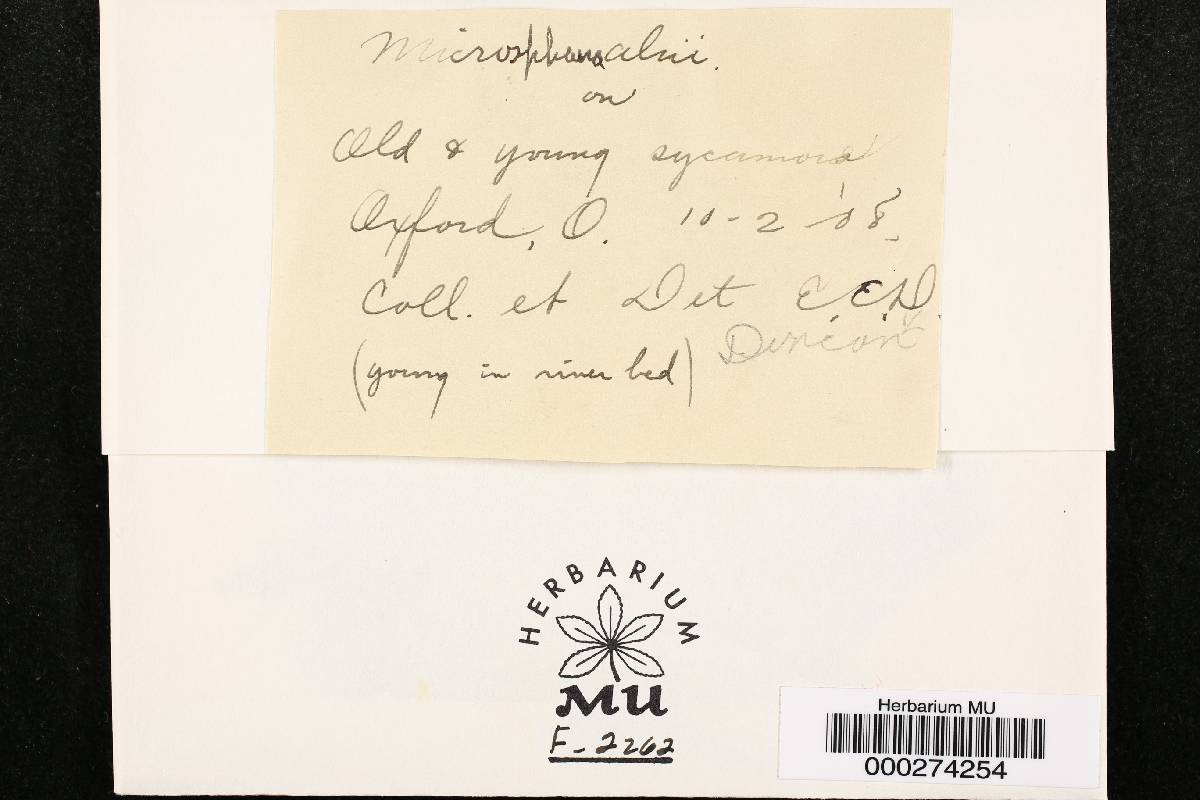 Microsphaera alni.
on
Old & young sycamore
Oxford, O. 10-2-'08.
Coll. et Det E.E.D.
Duncan
(young in river bed)
HERBARIUM
MU
F-2262
Herbarium MU
000274254